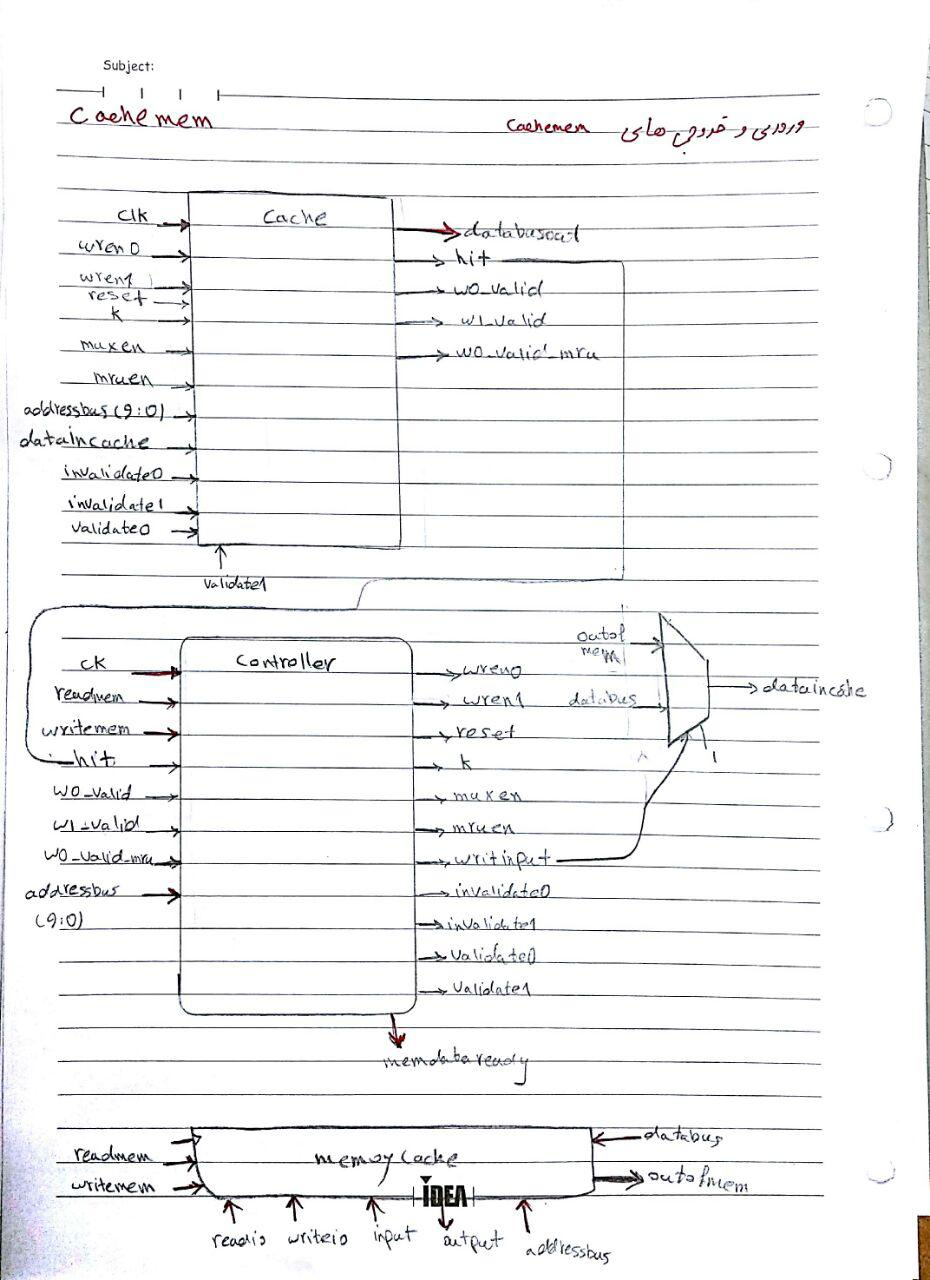 Subject:
Cachemem
ورودی و خروجی های Cachemem
Cache
clk
wren0
wren1
reset
k
muxen
mruen
addressbus (9:0)
dataincache
invalidate0
invalidate1
validate0
validate1
databusout
hit
w0_valid
w1_valid
w0_valid_mru
Controller
ck
readmem
writemem
hit
w0_valid
w1_valid
w0_valid_mru
addressbus
(9:0)
wren0
wren1
reset
k
muxen
mruen
writinput
invalidate0
invalidate1
validate0
validate1
memdataready
outof
mem
databus
1
dataincache
memoycache
readmem
writemem
databus
outofmem
IDEA
readio
writeio
input
output
addressbus